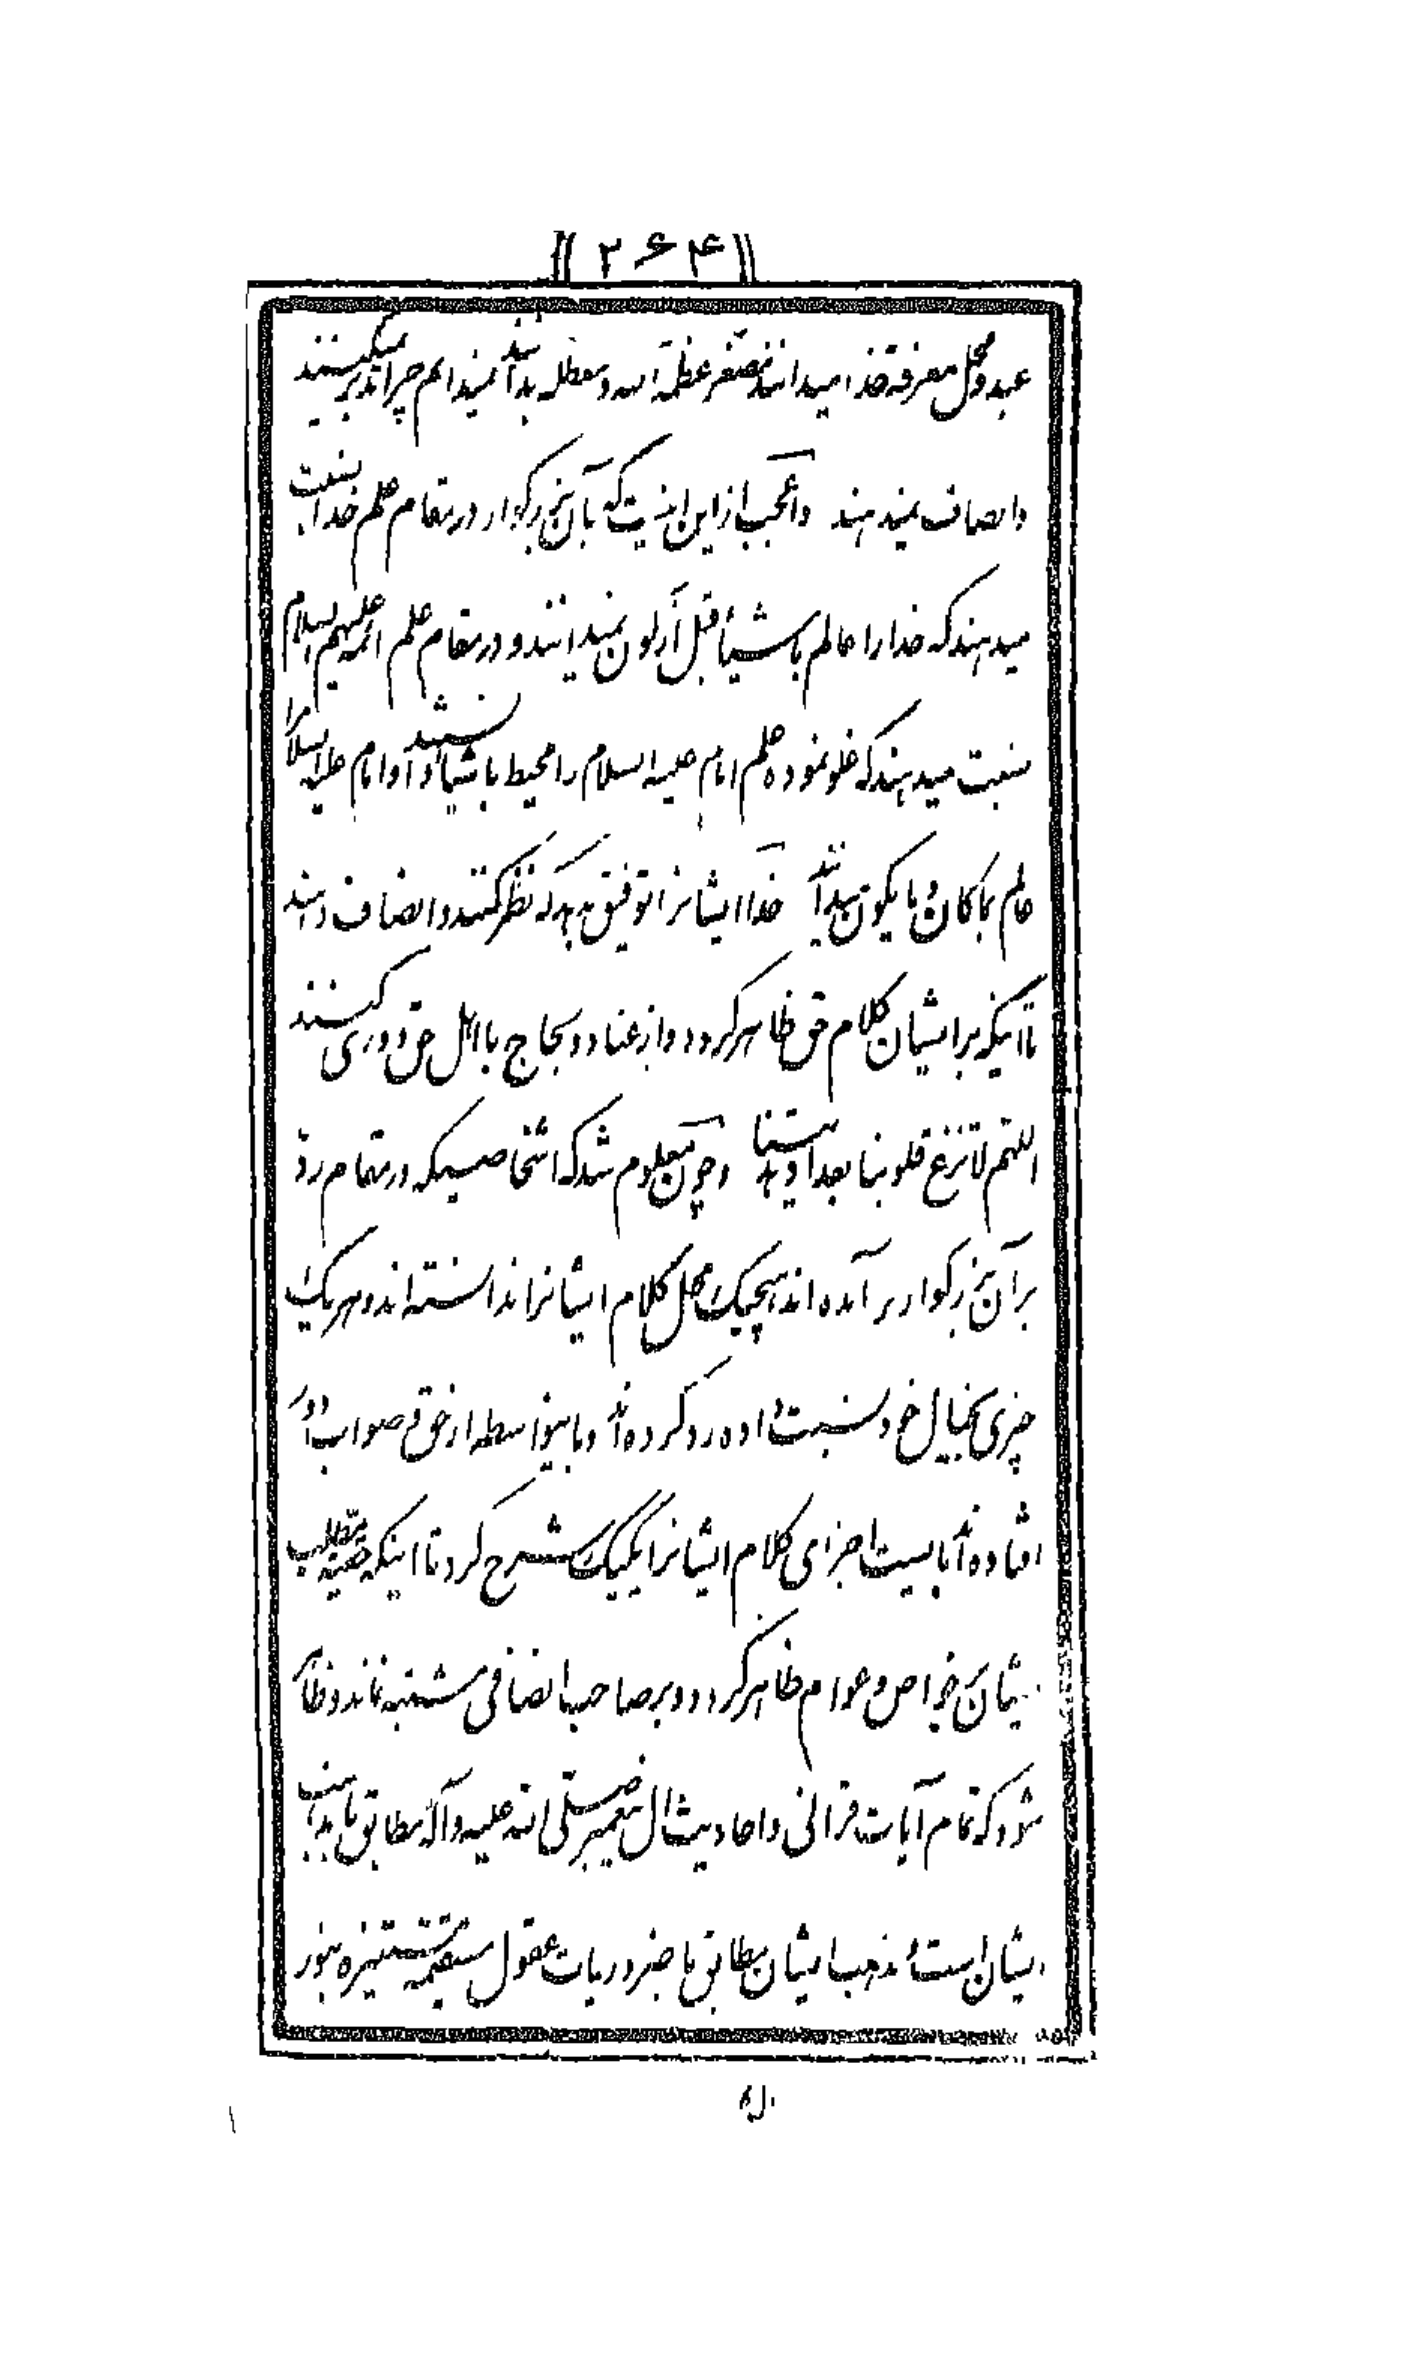 ۲۶۴
عبد و محل معرفة خدا میدانند مصغر عظمة الله و معطله بدانند نمیدانم چرا تدبر نمیکنند
و انصاف نمیدهند و اعجب از این اینست که بآن بزرگوار در مقام علم خدا نسبت
میدهند که خدا را عالم باشیاء قبل از کون نمیدانند و در مقام علم ائمه علیهم السلام
نسبت میدهند که غلو نموده علم امام علیه السلام را محیط باشیاء دانستند و امام علیه السلام را
عالم بماکان و مایکون میدانند خدا ایشانرا توفیق بدهد که نظر کنند و انصاف دهند
تا اینکه بر ایشان کلام حق ظاهر گردد و از عناد و لجاج با اهل حق دوری کنند
اللهم لا تزغ قلوبنا بعد اذ هدیتنا و چون معلوم شد که اشخاصیکه در مقام رد
بر آن بزرگوار بر آمده اند هیچیک محل کلام ایشانرا ندانسته اند و هر یک
چیزی بخیال خود نسبت داده رد کرده اند و باینواسطه از حق و صواب دور
افتاده اند بایست اجزای کلام ایشانرا یکیک شرح کرد تا اینکه حقیقت مطلب
ایشان بر خواص و عوام ظاهر گردد و بر صاحب انصافی مشتبه نماند و ظاهر
شود که تمام آیات قرآنی و احادیث آل پیغمبر صلی الله علیه و آله مطابق با مذهب
ایشان است و مذهب ایشان مطابق با ضروریات عقول مستقیمه مستنیره بنور